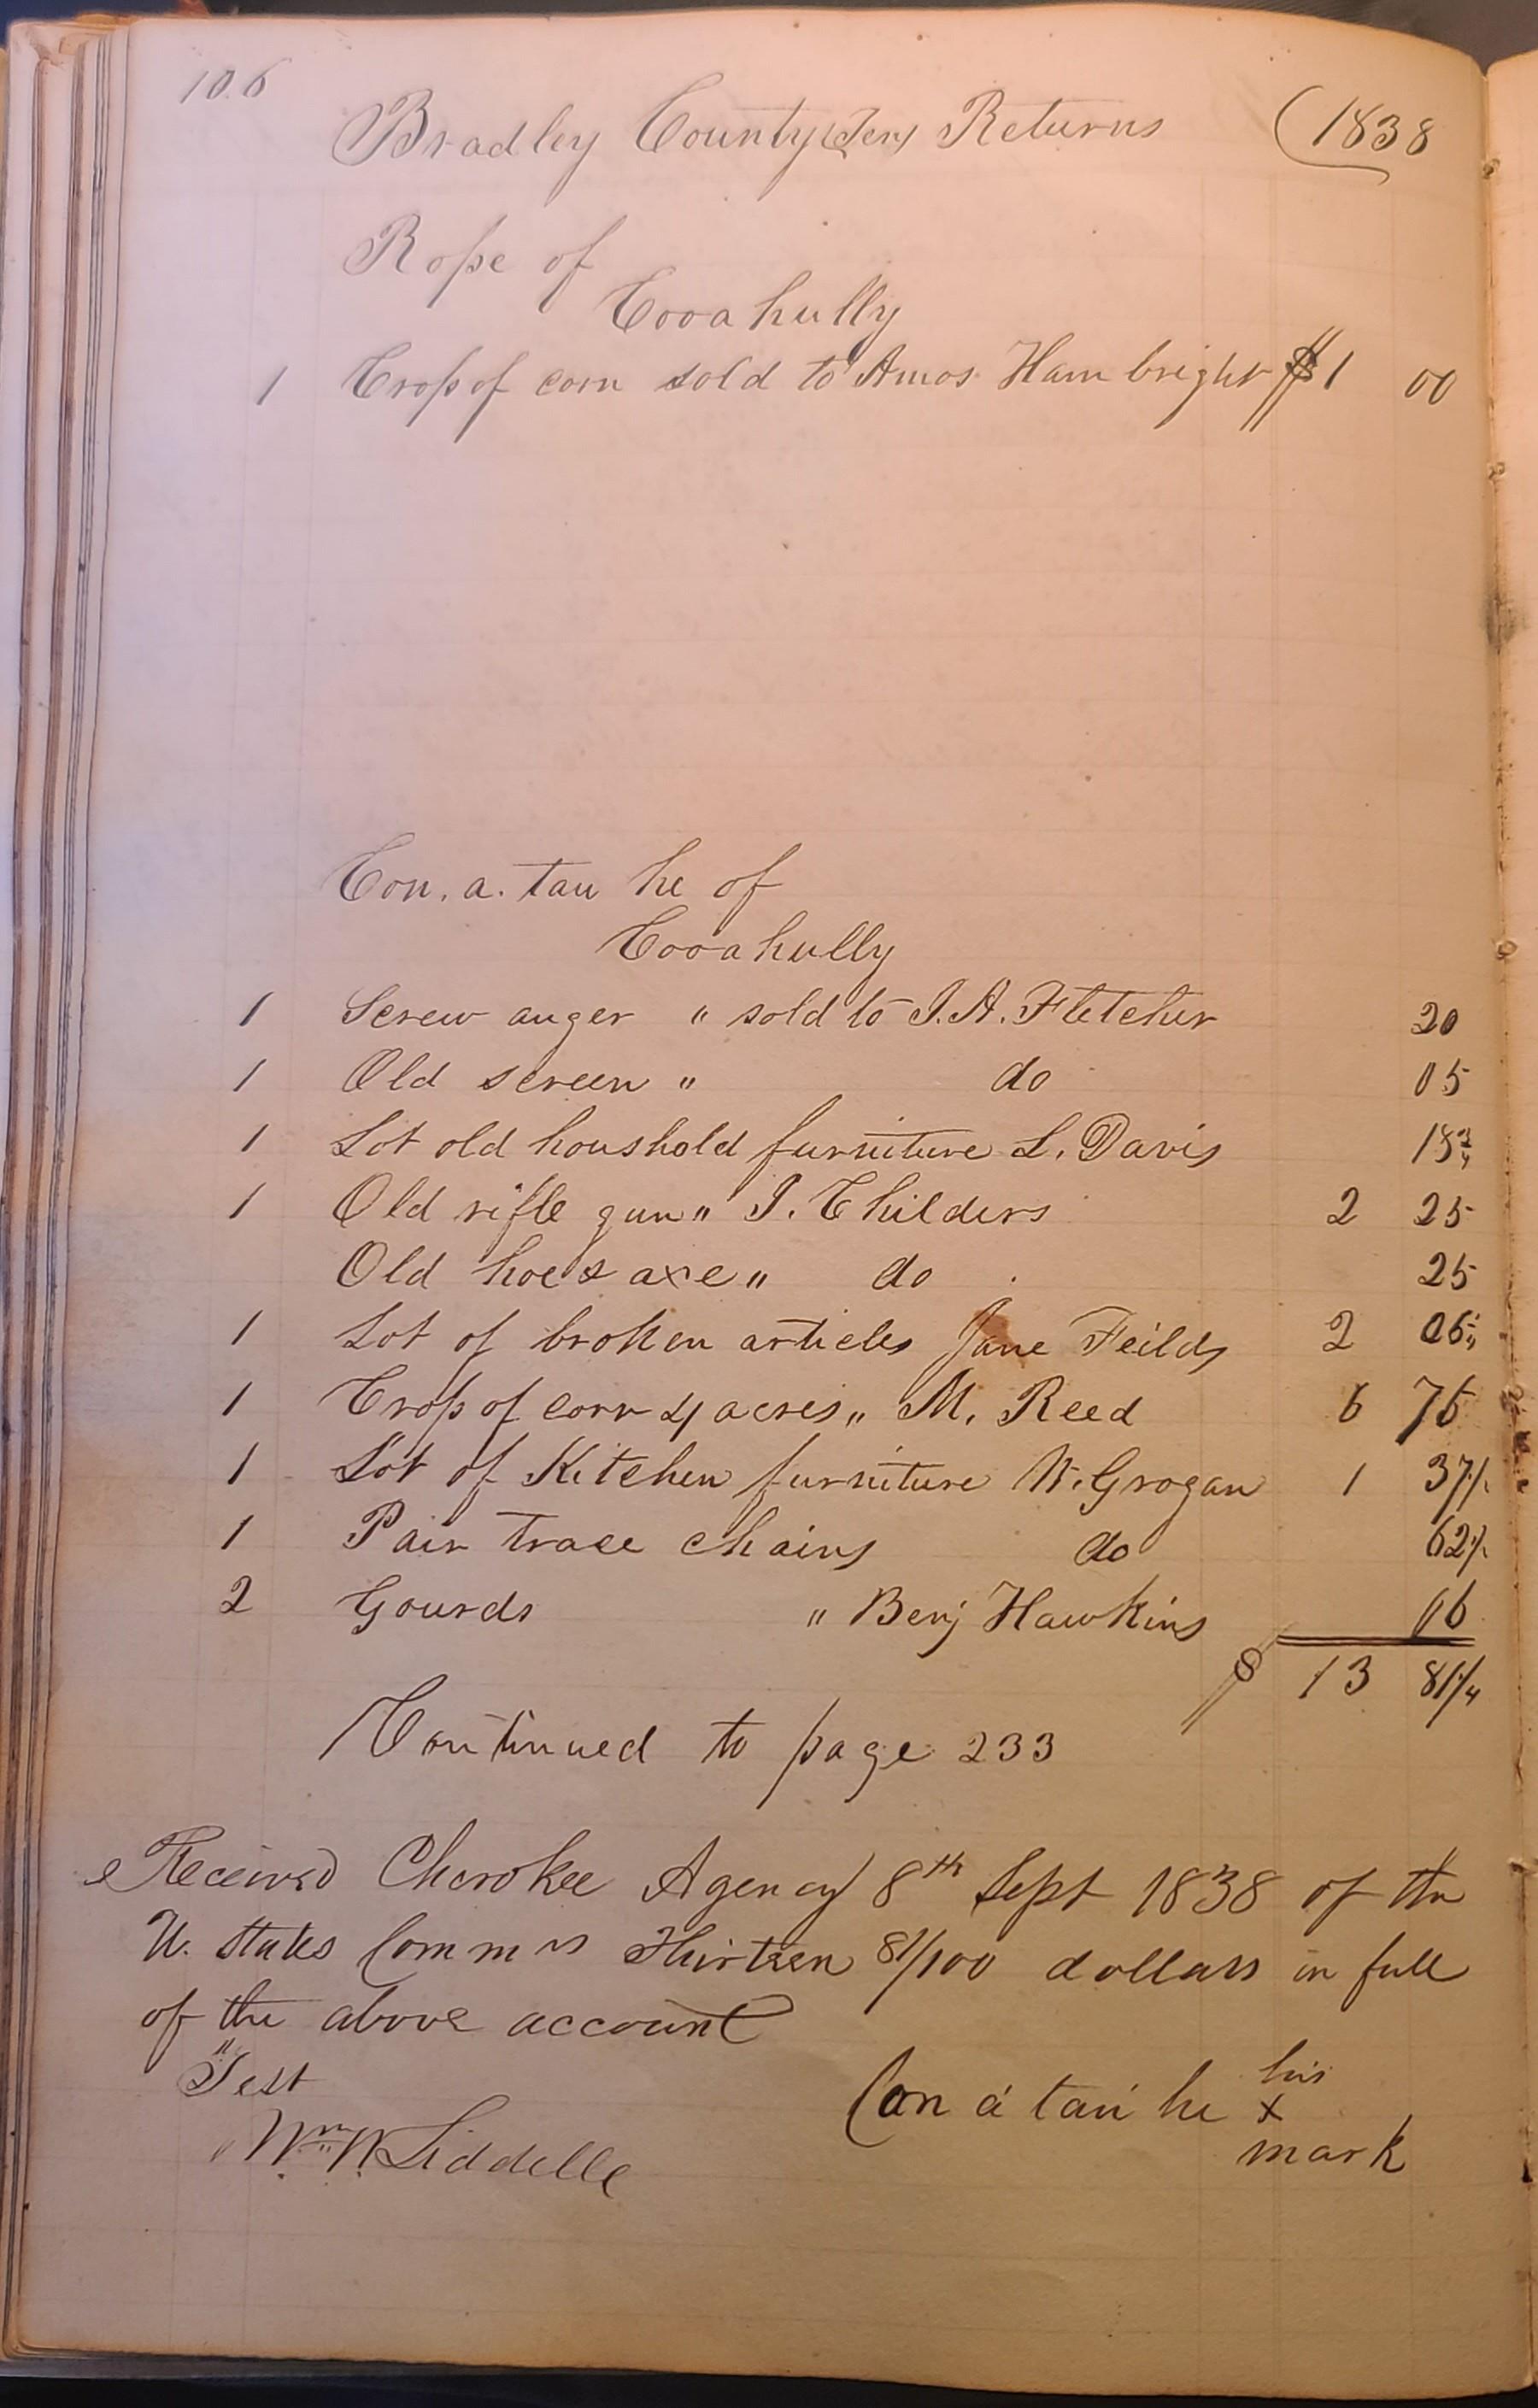 106
Bradley County Ten Returns (1838
Rope of
Cooahully
1 Crop of corn sold to Amos Hambright $1 00
Con. a. tau he of
Cooahully
1 Screw auger " sold to J. A. Fletcher 20
1 Old screen " do 05
1 Lot old houshold furniture L. Davis 18 3/4
1 Old rifle gun " J. Childers 2 25
Old hoe & axe " do 25
1 Lot of broken articles Jane Feilds 2
1 Crop of corn 4 acres " M. Reed 6 75
1 Lot of Kitchen furniture W. Grogan 1 37 1/2
1 Pair trace chains do 62 1/2
2 Gourds " Benj Hawkins 06
$ 13 81 1/4
Continued to page 233
Received Cherokee Agency 8th Sept 1838 of the
U. States Commrs Thirteen 81/100 dollars in full
of the above account
Test his
Con a tau he x
Wm W Liddelle mark